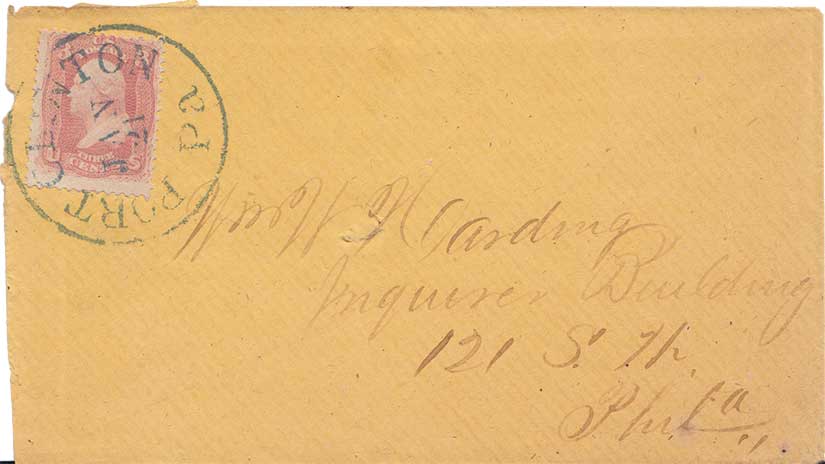 PORT CLINTON Pa
JAN
21
THREE
CENTS
Wm W Harding
Inquirer Building
121 S. Th.
Phila